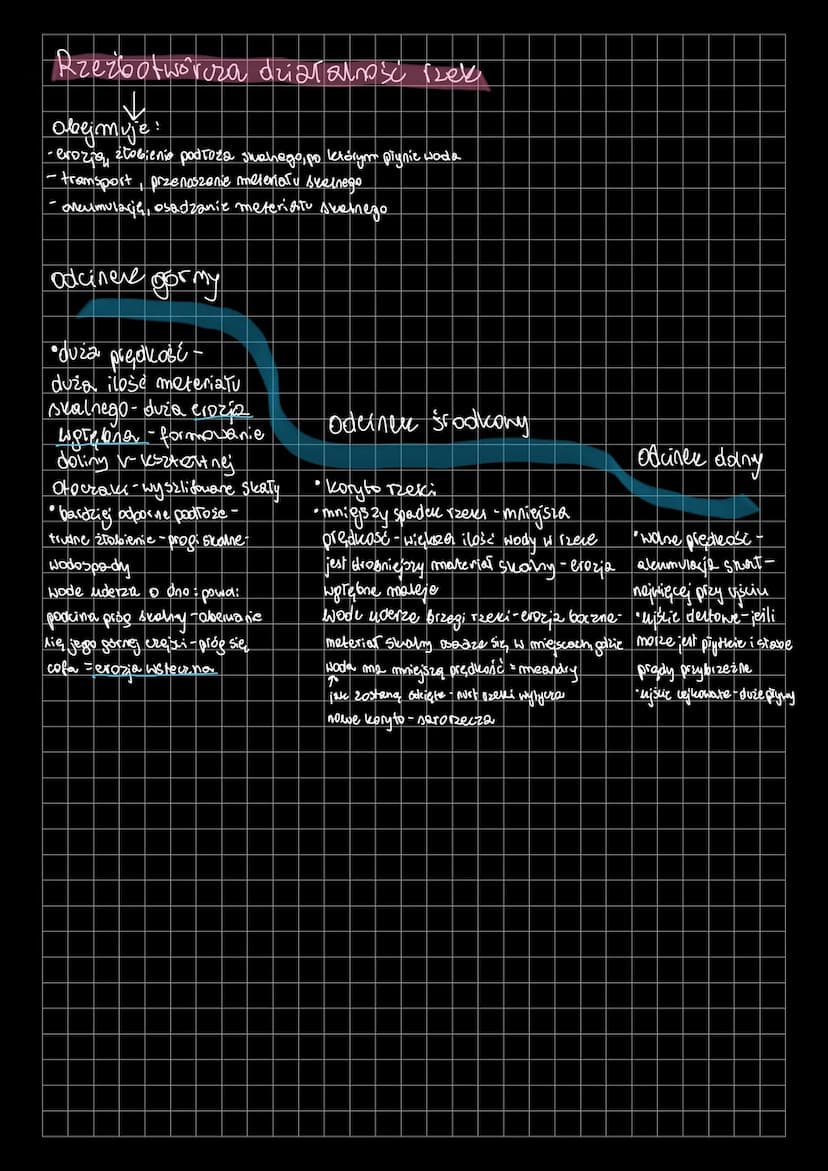 Rzeźbotwórcza działalność rzek
obejmuje:
- erozję, żłobienie podłoża skalnego, po którym płynie woda
- transport, przenoszenie materiału skalnego
- akumulację, osadzanie materiału skalnego
odcinek górny
•duża prędkość -
duża ilość materiału
skalnego - duża erozja
wgłębna - formowanie
doliny V-kształtnej
Otoczaki - wyszlifowane skały
•bardziej odporne podłoże -
trudne żłobienie - progi skalne
wodospady
woda uderza o dno i powa:
podcina próg skalny - obrywanie
się jego górnej części - próg się
cofa = erozja wsteczna
odcinek środkowy
•koryto rzeki
•mniejszy spadek rzeki - mniejsza
prędkość - większa ilość wody w rzece
jest drobniejszy materiał skalny - erozja
wgłębna maleje
woda uderza brzegi rzeki - erozja boczna -
materiał skalny osadza się w miejscach gdzie
woda ma mniejszą prędkość = meandry
↑
jak zostaną odcięte - nurt rzeki wytycza
nowe koryto - starorzecza
odcinek dolny
•wolna prędkość -
akumulacja skał -
najwięcej przy ujściu
•ujście deltowe - jeśli
morze jest płytkie i słabe
prądy przybrzeżne
•ujście lejkowate - duże pływy